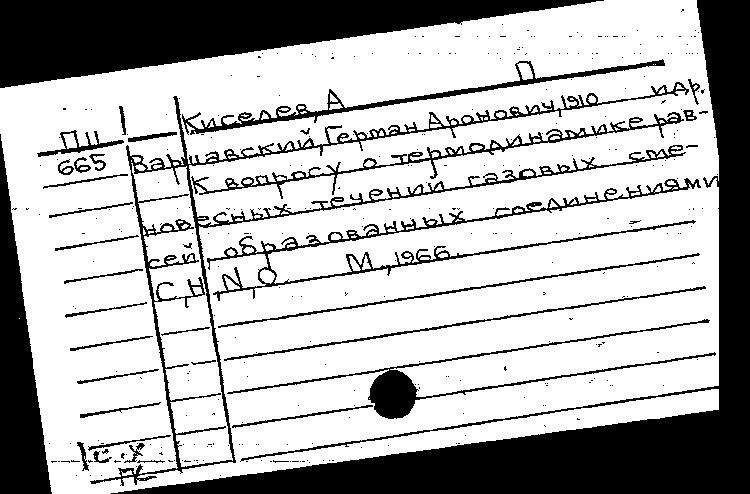 Киселев, А П
ПII
665 Варшавский, Герман Аронович, 1910 и др.
К вопросу о термодинамике рав-
новесных течений газовых сме-
сей, образованных соединениями
C, H, N, O. М., 1966.
с.х
ГК